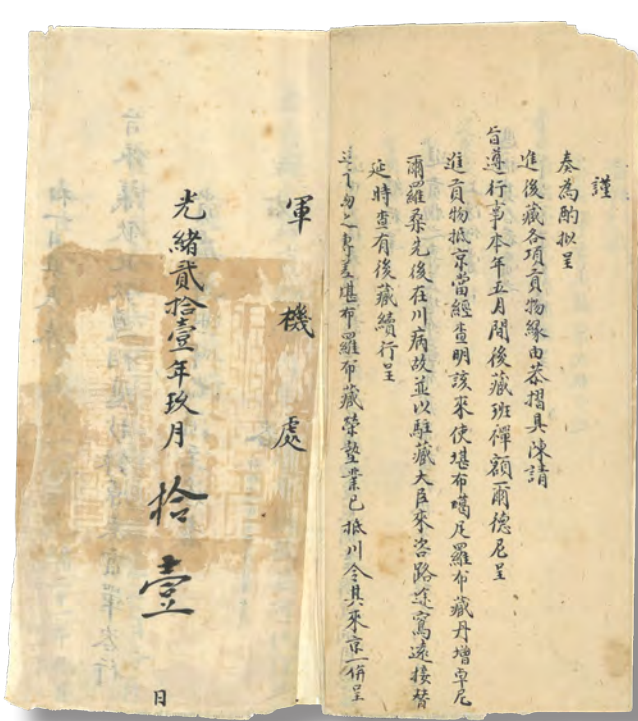 謹
奏為酌擬呈
進後藏各項貢物緣由恭摺具陳請
旨遵行事本年五月間後藏班禪額爾德尼呈
進貢物抵京當經查明該來使堪布噶尼羅布藏丹增卓尼
爾羅桑先後在川病故並以駐藏大臣來咨路途寫遠接替
延時查有後藏續行呈
之專差堪布羅布藏榮墊業已抵川令其來京一併呈
軍機處
光緒貳拾壹年玖月拾壹
日